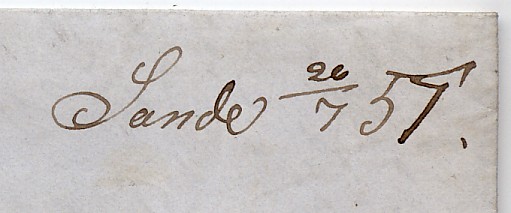 Sande 26/7 57.